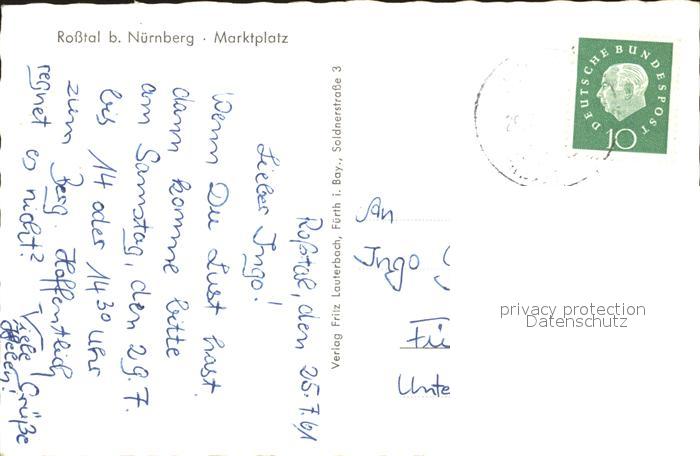 Roßtal b. Nürnberg · Marktplatz
Roßtal, den 25.7.61
Lieber Ingo!
Wenn Du Lust hast.
dann komme bitte
am Samstag, den 29.7.
bis 14 oder 14³⁰ Uhr
zum Berg. Hoffentlich
regnet es nicht?
Viele Grüße
Helen!
Verlag Fritz Lauterbach, Fürth i. Bay., Soldnerstraße 3
DEUTSCHE BUNDESPOST
10
An
Ingo
Fü
Unte
privacy protection
Datenschutz